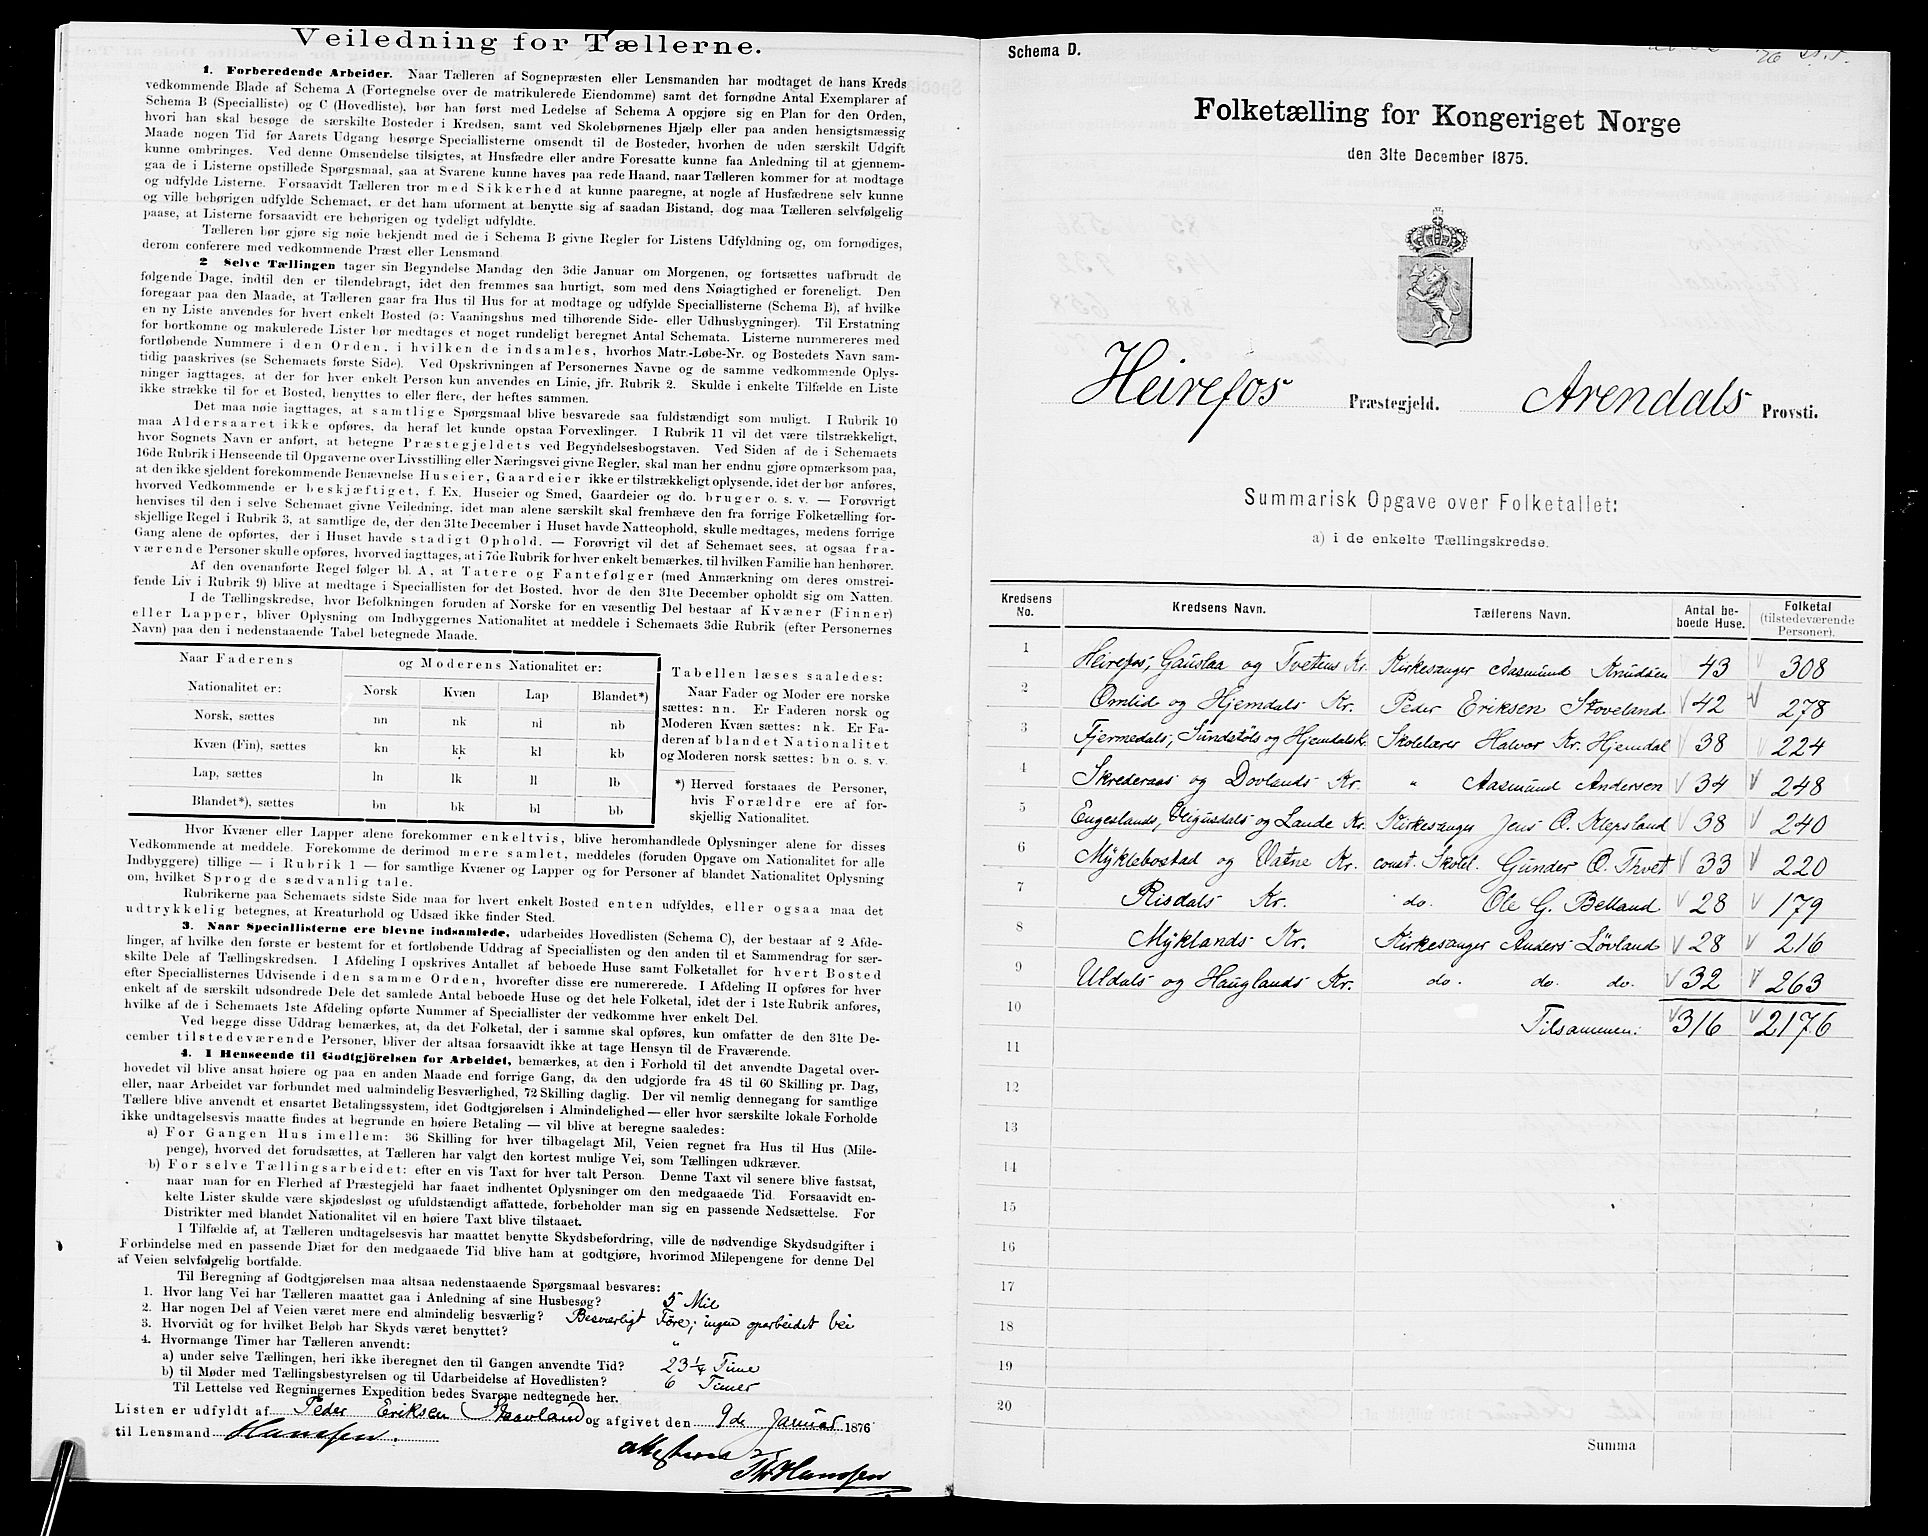 Veiledning for Tællerne.
1. Forberedende Arbeider. Naar Tælleren af Sognepræsten eller Lensmanden har modtaget de hans Kreds
vedkommende Blade af Schema A (Fortegnelse over de matrikulerede Eiendomme) samt det fornødne Antal Exemplarer af
Schema B (Specialliste) og C (Hovedliste), bør han først med Ledelse af Schema A opgjøre sig en Plan for den Orden,
hvori han skal besøge de særskilte Bosteder i Kredsen, samt ved Skolebørnenes Hjælp eller paa anden hensigtsmæssig
Maade nogen Tid før Aarets Udgang besørge Speciallisterne omsendt til de Bosteder, hvorhen de uden særskilt Udgift
kunne ombringes. Ved denne Omsendelse tilsigtes, at Husfædre eller andre Foresatte kunne faa Anledning til at gjennem-
gaa de i Listerne opstillede Spørgsmaal, saa at Svarene kunne haves paa rede Haand, naar Tælleren kommer for at modtage
og udfylde Listerne. Forsaavidt Tælleren tror med Sikkerhed at kunne paaregne, at nogle af Husfædrene selv kunne
og ville behørigen udfylde Schemaet, er det ham uforment at benytte sig af saadan Bistand, dog maa Tælleren selvfølgelig
paase, at Listerne forsaavidt ere behørigen og tydeligt udfyldte.
Tælleren bør gjøre sig nøie bekjendt med de i Schema B givne Regler for Listens Udfyldning og, om fornødiges,
derom conferere med vedkommende Præst eller Lensmand.
2 Selve Tællingen tager sin Begyndelse Mandag den 3die Januar om Morgenen, og fortsættes uafbrudt de
følgende Dage, indtil den er tilendebragt, idet den fremmes saa hurtigt, som med dens Nøiagtighed er foreneligt. Den
foregaar paa den Maade, at Tælleren gaar fra Hus til Hus for at modtage og udfylde Speciallisterne (Schema B), af hvilke
en ny Liste anvendes for hvert enkelt Bosted (ɔ: Vaaningshus med tilhørende Side- eller Udhusbygninger). Til Erstatning
for bortkomne og makulerede Lister bør medtages et noget rundeligt beregnet Antal Schemata. Listerne nummereres med
fortløbende Nummere i den Orden, i hvilken de indsamles, hvorhos Matr.-Løbe-Nr. og Bostedets Navn sam-
tidig paaskrives (se Schemaets første Side). Ved Opskrivningen af Personernes Navne og de samme vedkommende Oplys-
ninger iagttages, at der for hver enkelt Person kun anvendes en Linie, jfr. Rubrik 2. Skulde i enkelte Tilfælde en Liste
ikke strække til for et Bosted, benyttes to eller flere, der heftes sammen.
Det maa nøie iagttages, at samtlige Spørgsmaal blive besvarede saa fuldstændigt som muligt. I Rubrik 10
maa Aldersaaret ikke opføres, da heraf let kunde opstaa Forvexlinger. I Rubrik 11 vil det være tilstrækkeligt,
hvor Sognets Navn er anført, at betegne Præstegjeldets ved Begyndelsesbogstaven. Ved Siden af de i Schemaets
16de Rubrik i Henseende til Opgaverne over Livsstilling eller Næringsvei givne Regler, skal man her endnu gjøre opmærksom paa,
at den ikke sjeldent forekommende Benævnelse Huseier, Gaardeier ikke er tilstrækkeligt oplysende, idet der bør anføres,
hvorved Vedkommende er beskjæftiget, f. Ex. Huseier og Smed, Gaardeier og do. bruger o. s. v. — Forøvrigt
henvises til den i selve Schemaet givne Veiledning, idet man alene særskilt skal fremhæve den fra forrige Folketælling for-
skjellige Regel i Rubrik 3, at samtlige de, der den 31te December i Huset havde Natteophold, skulle medtages, medens forrige
Gang alene de opførtes, der i Huset havde stadigt Ophold. — Forøvrigt vil det af Schemaet sees, at ogsaa fra-
værende Personer skulle opføres, hvorved iagttages, at i 7de Rubrik for hver enkelt bemærkes, til hvilken Familie han henhører.
Af den ovenanførte Regel følger bl. A., at Tatere og Fantefølger (med Anmærkning om deres omstrei-
fende Liv i Rubrik 9) blive at medtage i Speciallisten for det Bosted, hvor de den 31te December opholdt sig om Natten.
I de Tællingskredse, hvor Befolkningen foruden af Norske for en væsentlig Del bestaar af Kvæner (Finner)
eller Lapper, bliver Oplysning om Indbyggernes Nationalitet at meddele i Schemaets 3die Rubrik (efter Personernes
Navn) paa den i nedenstaaende Tabel betegnede Maade.
Naar Faderens og Moderens Nationalitet er:
Nationalitet er: Norsk Kvæn Lap Blandet*)
Norsk, sættes nn nk nl nb
Kvæn (Fin), sættes kn kk kl kb
Lap, sættes ln lk ll lb
Blandet*), sættes bn bk bl bb
Tabellen læses saaledes:
Naar Fader og Moder ere norske
sættes: nn. Er Faderen norsk og
Moderen Kvæn sættes: nk. Er Fa-
deren af blandet Nationalitet
og Moderen norsk sættes: bn o. s. v.
*) Herved forstaaes de Personer,
hvis Forældre ere af for-
skjellig Nationalitet.
Hvor Kvæner eller Lapper alene forekommer enkeltvis, blive heromhandlede Oplysninger alene for disses
Vedkommende at meddele. Forekomme de derimod mere samlet, meddeles (foruden Opgave om Nationalitet for alle
Indbyggere) tillige — i Rubrik 1 — for samtlige Kvæner og Lapper og for Personer af blandet Nationalitet Oplysning
om, hvilket Sprog de sædvanlig tale.
Rubrikerne paa Schemaets sidste Side maa for hvert enkelt Bosted enten udfyldes, eller ogsaa maa det
udtrykkelig betegnes, at Kreaturhold og Udsæd ikke finder Sted.
3. Naar Speciallisterne ere blevne indsamlede, udarbeides Hovedlisten (Schema C), der bestaar af 2 Afde-
linger, af hvilke den første er bestemt for et fortløbende Uddrag af Speciallisten og den anden til et Sammendrag for sær-
skilte Dele af Tællingskredsen. I Afdeling I opskrives Antallet af beboede Huse samt Folketallet for hvert Bosted
efter Speciallisternes Udvisende i den samme Orden, hvorefter disse ere numererede. I Afdeling II opføres for hver
enkelt af de særskilt udsondrede Dele det samlede Antal beboede Huse og det hele Folketal, idet der i 1ste Rubrik anføres,
hvilke af de i Schemaets 1ste Afdeling opførte Nummer af Speciallister der vedkomme hver enkelt Del.
Ved begge disse Uddrag bemærkes, at, da det Folketal, der i samme skal opføres, kun omfatter de den 31te De-
cember tilstedeværende Personer, bliver der altsaa forsaavidt ikke at tage Hensyn til de Fraværende.
4. I Henseende til Godtgjörelsen for Arbeidet, bemærkes, at den i Forhold til det anvendte Dagetal over-
hovedet vil blive ansat høiere og paa en anden Maade end forrige Gang, da den udgjorde fra 48 til 60 Skilling pr. Dag,
eller, naar Arbeidet var forbundet med ualmindelig Besværlighed, 72 Skilling daglig. Der vil nemlig dennegang for samtlige
Tællere blive anvendt et ensartet Betalingssystem, idet Godtgjørelsen i Almindelighed — eller hvor særskilte lokale Forholde
ikke undtagelsesvis maatte findes at begrunde en høiere Betaling — vil blive at beregne saaledes:
a) For Gangen Hus imellem: 36 Skilling for hver tilbagelagt Mil, Veien regnet fra Hus til Hus (Mile-
penge), hvorved det forudsættes, at Tælleren har valgt den kortest mulige Vei, som Tællingen udkræver.
b) For selve Tællingsarbeidet: efter en vis Taxt for hver talt Person. Denne Taxt vil senere blive fastsat,
naar man for en Flerhed af Præstegjeld har faaet indhentet Oplysninger om den medgaaede Tid. Forsaavidt en-
kelte Lister skulde være skjødesløst og ufuldstændigt affattede, forbeholder man sig en passende Nedsættelse. For
Distrikter med blandet Nationalitet vil en høiere Taxt blive tilstaaet.
I Tilfælde af, at Tælleren undtagelsesvis har maattet benytte Skydsbefordring, ville de nødvendige Skydsudgifter i
Forbindelse med en passende Diæt for den medgaaede Tid blive ham at godtgjøre, hvorimod Milepengene for denne Del
af Veien selvfølgelig bortfalde.
Til Beregning af Godtgjørelsen maa altsaa nedenstaaende Spørgsmaal besvares:
1. Hvor lang Vei har Tælleren maattet gaa i Anledning af sine Husbesøg? 5 Mil
2. Har nogen Del af Veien været mere end almindelig besværlig? Besværligt Føre; ingen oparbeidet Vei
3. Hvorvidt og for hvilket Beløb har Skyds været benyttet?
4. Hvormange Timer har Tælleren anvendt: "
a) under selve Tællingen, heri ikke iberegnet den til Gangen anvendte Tid? 23 1/4 Time
b) til Møder med Tællingsbestyrelsen og til Udarbeidelse af Hovedlisten? 6 Timer
Til Lettelse ved Regningernes Expedition bedes Svarene nedtegnede her.
Listen er udfyldt af Peder Eriksen Staavland og afgivet den 9de Januar 1876
til Lensmand Hanssen.
Hanssen
Schema D.
Folketælling for Kongeriget Norge
den 31te December 1875.
Heirefos Præstegjeld. Arendals Provsti.
Summarisk Opgave over Folketallet:
a) i de enkelte Tællingskredse.
Kredsens No. Kredsens Navn. Tællerens Navn. Antal be- boede Huse. Folketal (tilstedeværende Personer).
1 Heirefos, Gauslaa og Tvetens Kr. Kirkesanger Aasmund Knudsen 43 308
2 Omlid og Hjemdals Kr. Peder Eriksen Stoveland 42 278
3 Fjermedals, Sundstøls og Hjemdals Kr. Skolelærer Halvor Kr. Hjemdal 38 224
4 Skrederaas og Dovlands Kr. " Aasmund Andersen 34 248
5 Engeslands, Oigusdals og Lande Kr. Kirkesanger Jens O. Klepsland 38 240
6 Myklebostad og Vatne Kr. const. Skolel. Gunder O. Thvet 33 220
7 Risdals Kr. do. Ole G. Belland 28 179
8 Myklands Kr. Kirkesanger Anders Løvland 28 216
9 Uldals og Hauglands Kr. do. do. do. 32 263
10 Tilsammen: 316 2176
11
12
13
14
15
16
17
18
19
20
Summa